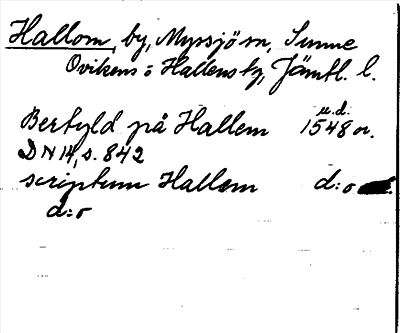 Hallom, by, Myssjö sn, Sunne
Ovikens o Hallens tg, Jämtl. l.
u.d.
Bertyld på Hallem 1548 or.
DN 14, s. 842
scriptum Hallem d:o
d:o